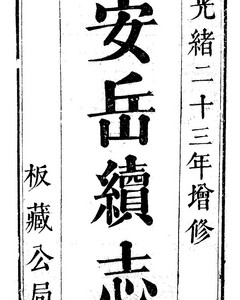 光緒二十三年增修
安岳續志
板藏公局